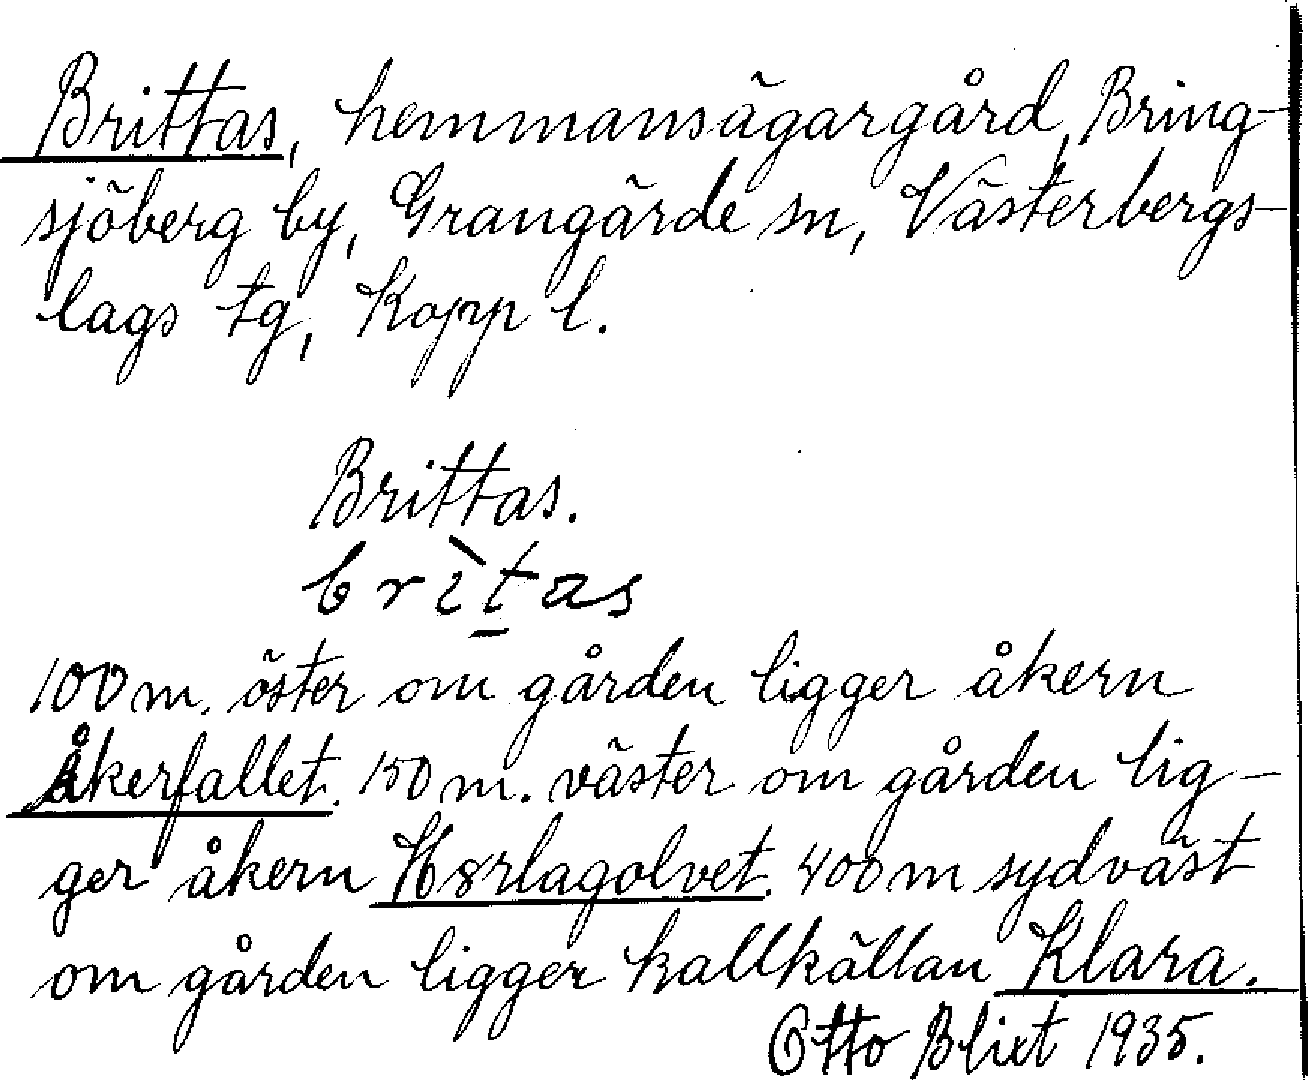 Brittas, hemmansägargård, Bring-
sjöberg by, Grangärde sn, Västerbergs-
lags tg, Kopp l.
Brittas.
brìt̲as
100 m. öster om gården ligger åkern
Åkerfallet. 150 m. väster om gården lig-
ger åkern Härlagolvet. 400 m sydväst
om gården ligger kallkällan Klara.
Otto Blixt 1935.